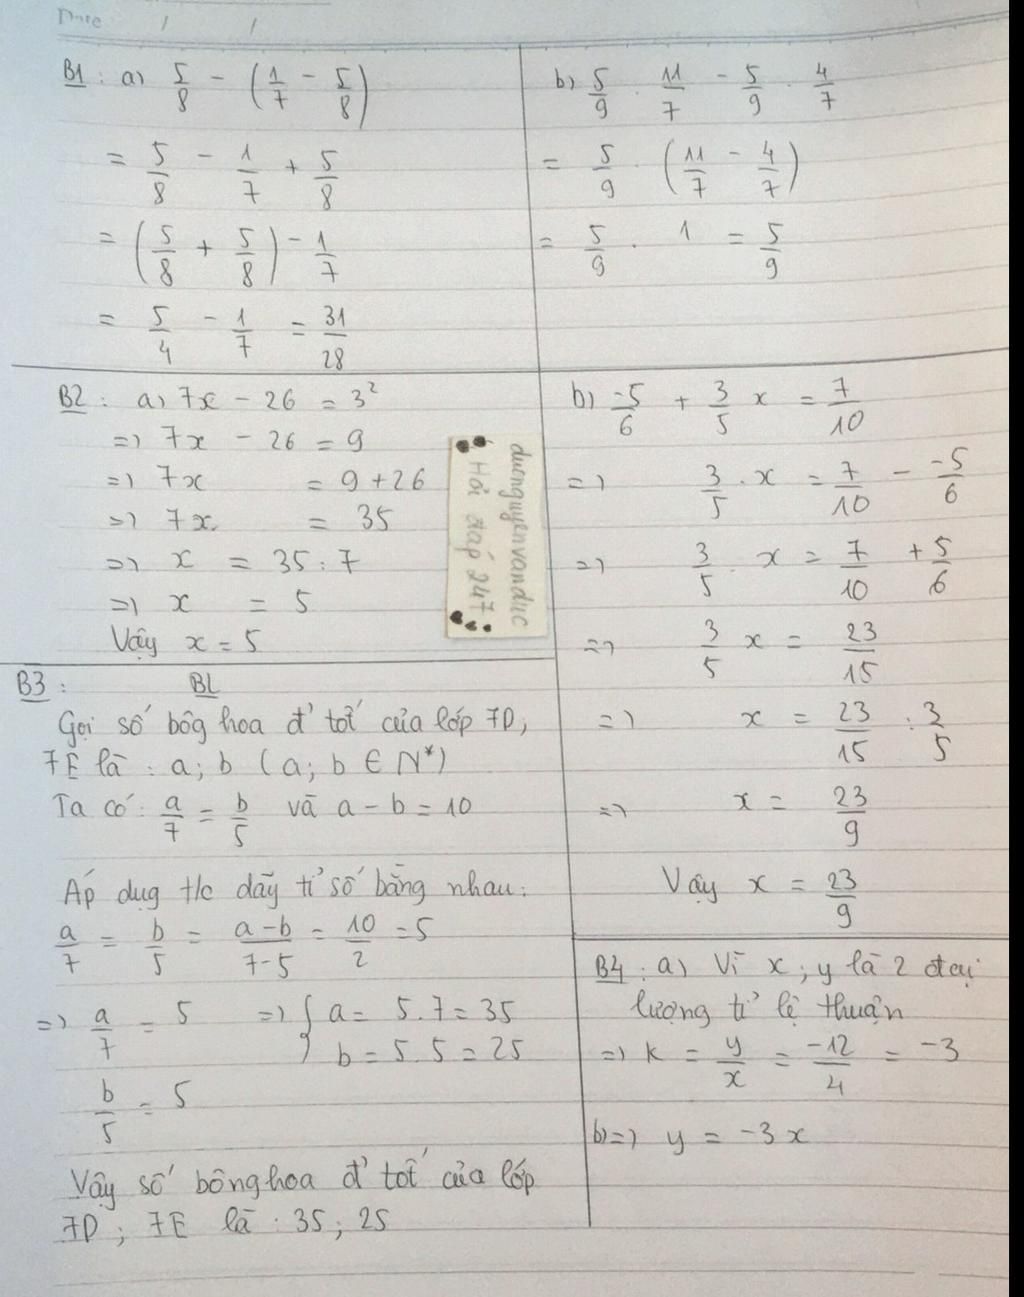 Date / /
B1 : a) 5/8 - (1/7 - 5/8)
= 5/8 - 1/7 + 5/8
= (5/8 + 5/8) - 1/7
= 5/4 - 1/7 = 31/28
b) 5/9 . 11/7 - 5/9 . 4/7
= 5/9 . (11/7 - 4/7)
= 5/9 . 1 = 5/9
B2 : a) 7x - 26 = 3²
=> 7x - 26 = 9
=> 7x = 9 + 26
=> 7x = 35
=> x = 35 : 7
=> x = 5
Vậy x = 5
duonguyenvanduc
Hỏi đáp 247
b) -5/6 + 3/5 x = 7/10
=> 3/5 . x = 7/10 - -5/6
=> 3/5 . x = 7/10 + 5/6
=> 3/5 x = 23/15
=> x = 23/15 : 3/5
=> x = 23/9
Vậy x = 23/9
B3 : BL
Gọi số bôg hoa đ' tốt của lớp 7D,
7E là : a; b (a; b ∈ N*)
Ta có : a/7 = b/5 và a - b = 10
Áp dụg t/c dãy tỉ số bằng nhau :
a/7 = b/5 = a-b/7-5 = 10/2 = 5
=> a/7 = 5 => { a = 5.7 = 35
b = 5.5 = 25
b/5 = 5
Vậy số bông hoa đ' tốt của lớp
7D ; 7E là : 35 ; 25
B4 : a) Vì x ; y là 2 đại
lượng tỉ lệ thuận
=> k = y/x = -12/4 = -3
b) => y = -3x